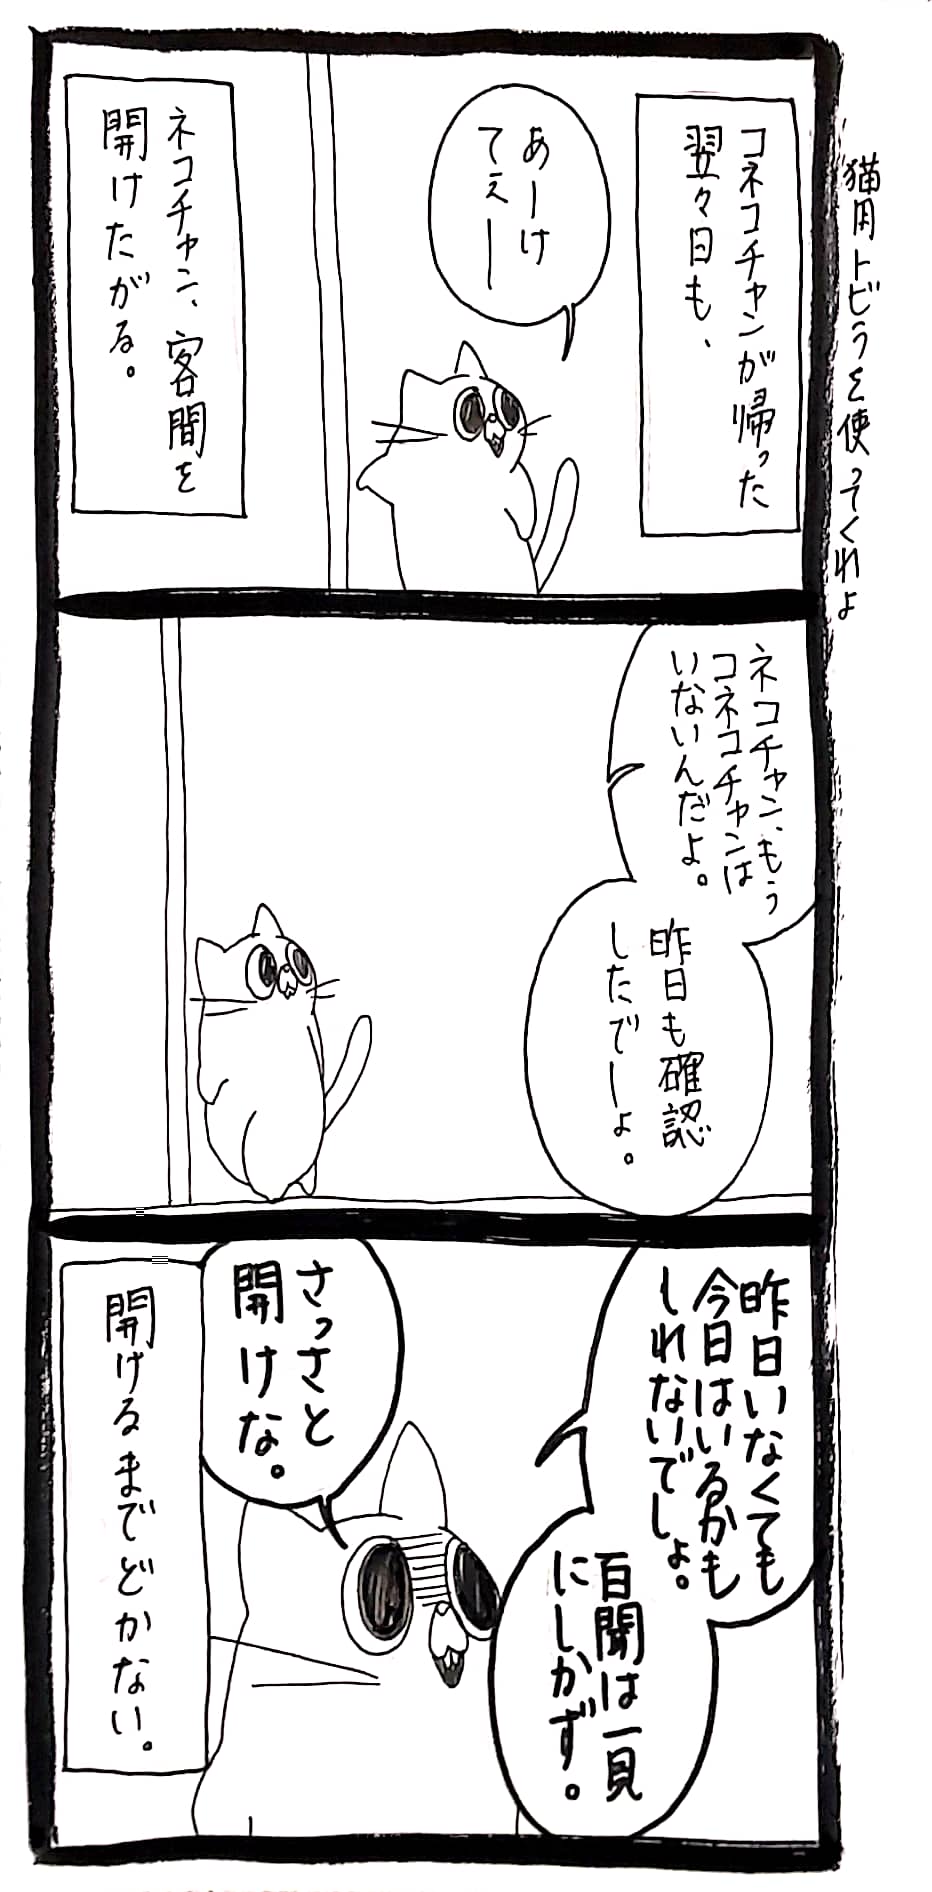 猫用トビラを使ってくれよ
コネコチャンが帰った
翌々日も、
あーけ
てぇー
ネコチャン、客間を
開けたがる。
ネコチャン、もう
コネコチャンは
いないんだよ。
昨日も確認
したでしょ。
昨日いなくても
今日はいるかも
しれないでしょ。
百聞は一見
にしかず。
さっさと
開けな。
開けるまでどかない。